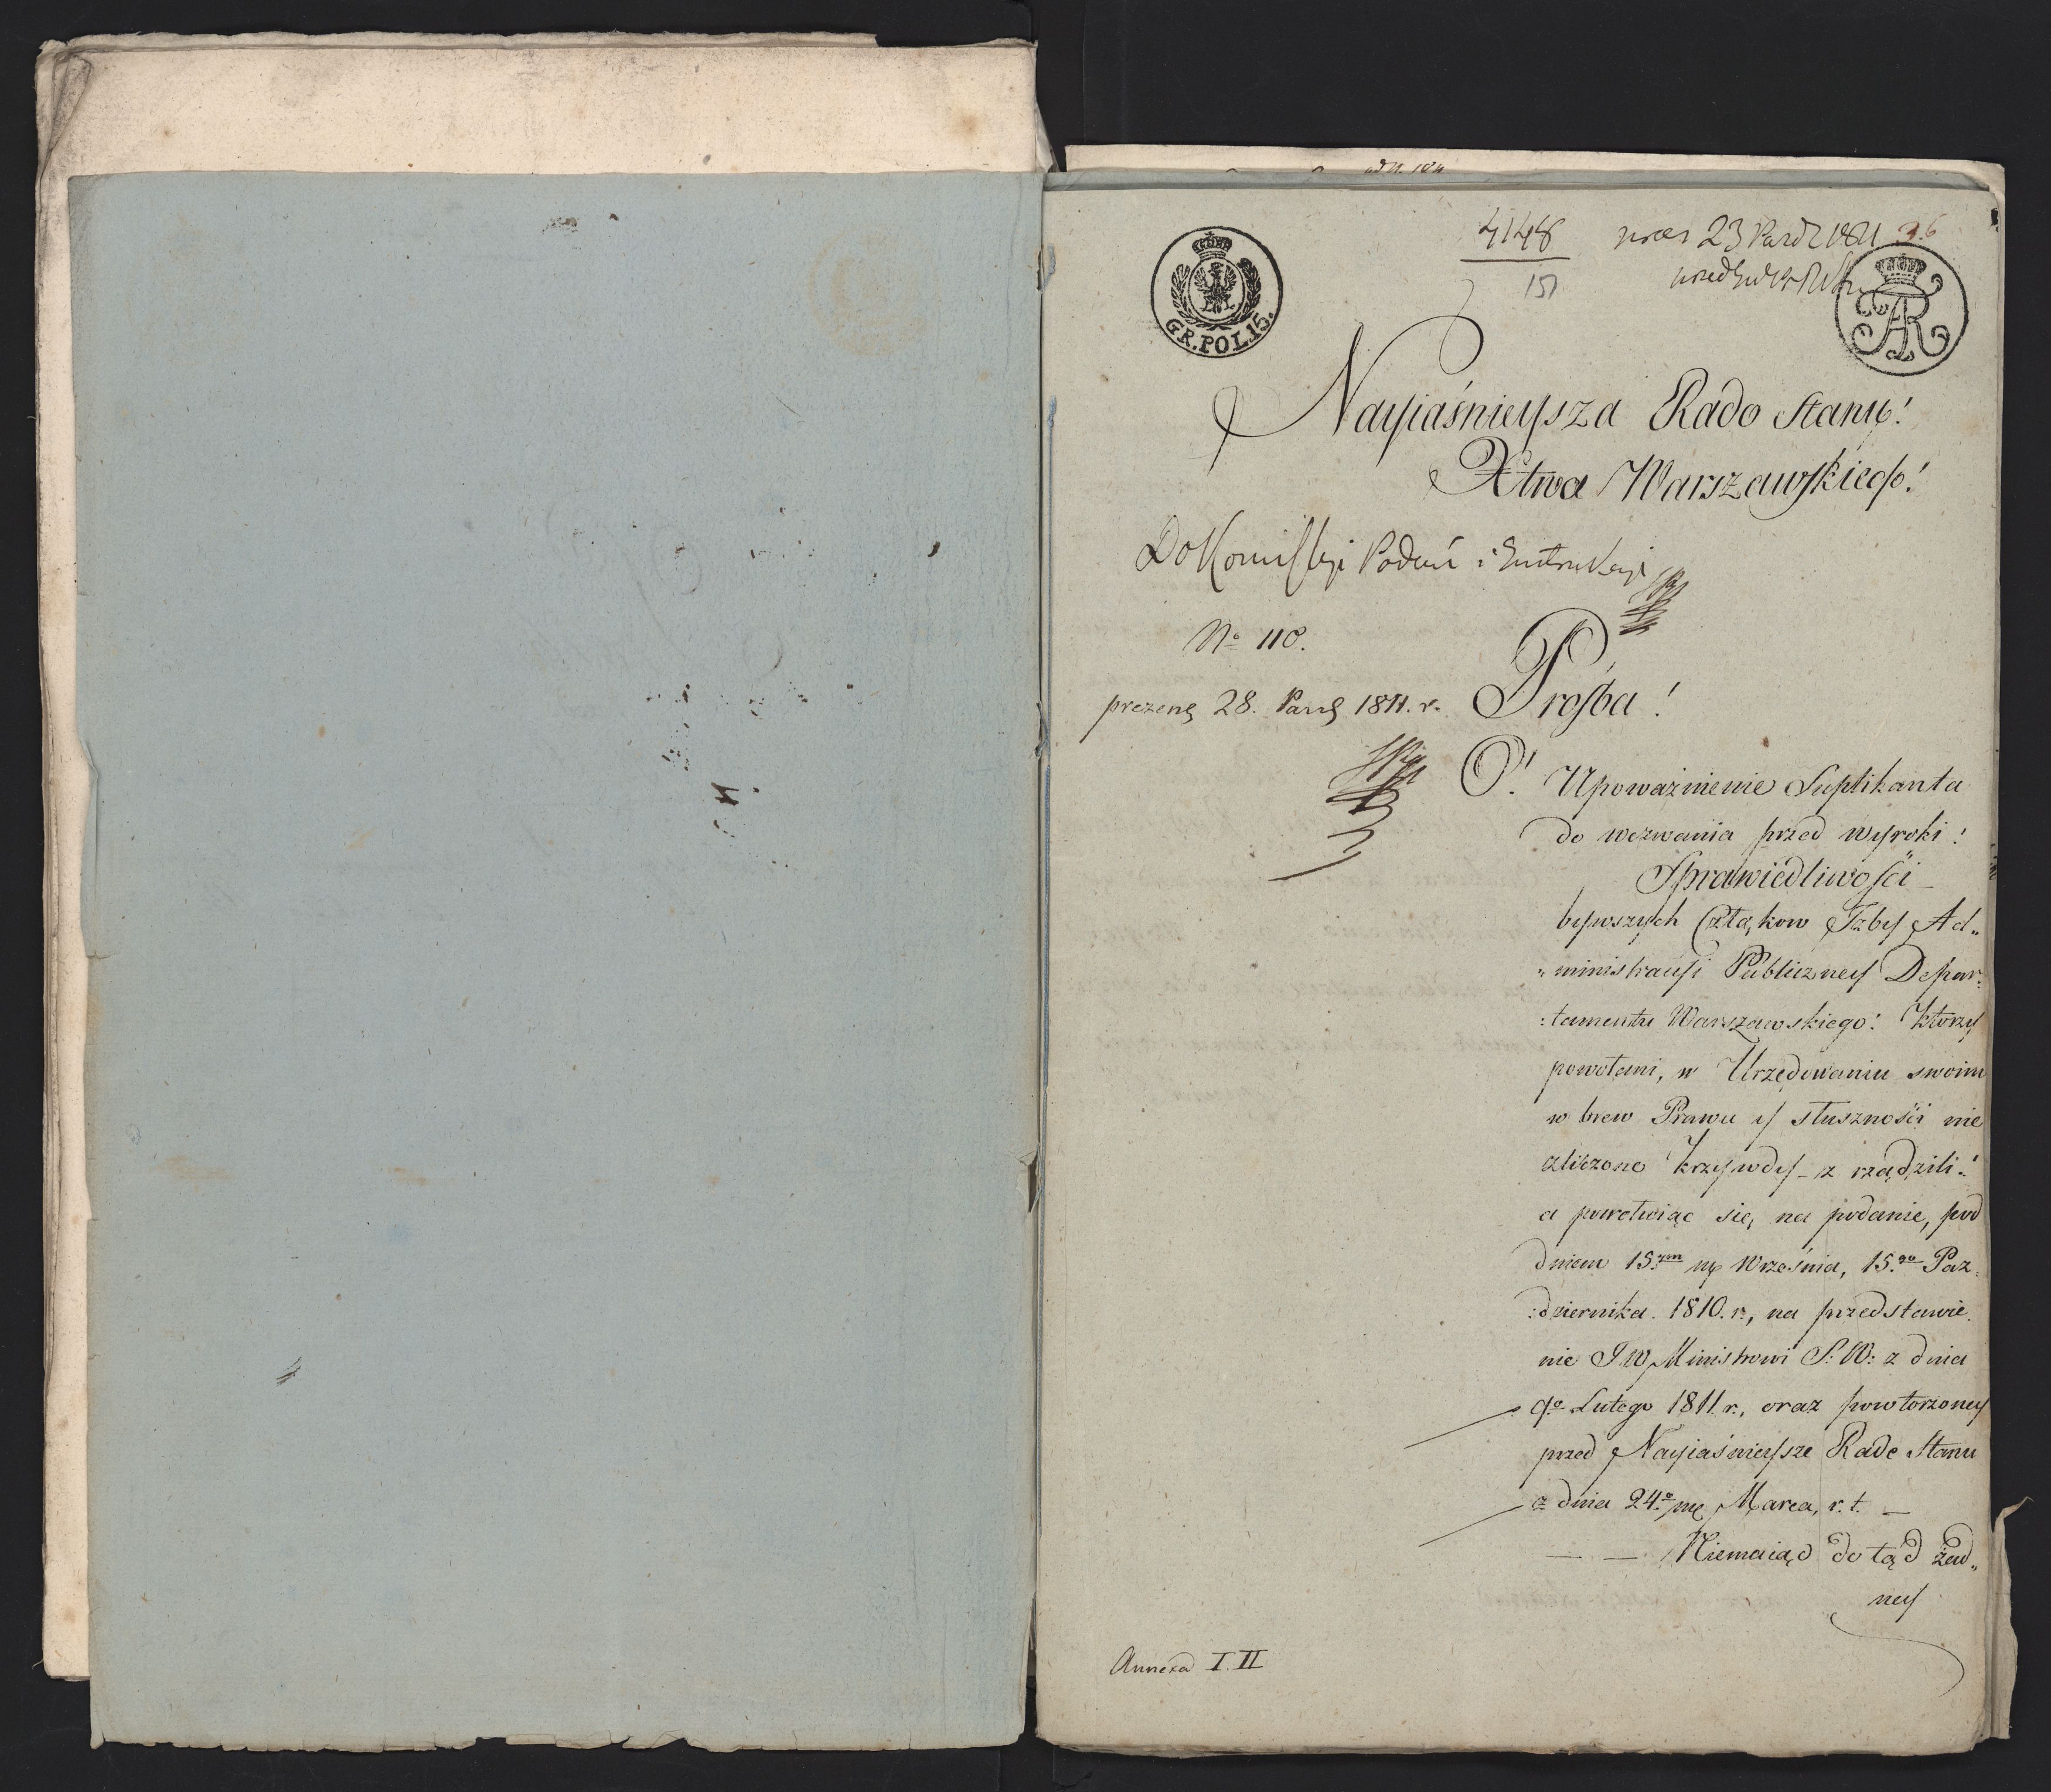 4148
151
pres 23 Pazdz 1811
26
GR. POL. 15.
AR
Nayiaśnieysza Rado Stanu!
Xtwa Warszawskiego!
Do Kommissyi Podań i Instrukcyi
No 110.
prezent 28. Paźd 1811. r.
Prośba!
O! Upoważnienie Suplikanta
do wezwania przed wyroki!
Sprawiedliwości
bywszych Członkow Izby Ad„
„ministracyi Publiczney Depar:
:tamentu Warszawskiego: Ktorzy
powołani, w Urzędowaniu swoim
w brew Prawu y słuszności nie
zliczone krzywdy z rządzili!
a powołuiąc się, na podanie, pod
dniem 15.ym Września, 15.go Paz:
:dziernika 1810. r., na przedstawie
nie JW Ministrowi S: W: z dnia
9o Lutego 1811. r., oraz powtorzoney
przed Nayiaśnieysze Rade Stanu
z dnia 24.o Marca, r. t. —
— — Niemaiąc do tąd żad„
ney
Annexa I. II